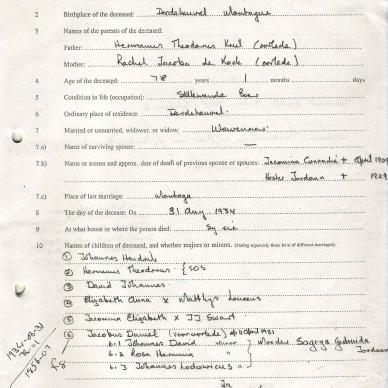 2 Birthplace of the deceased: Dordsheuvel Montague
3 Names of the parents of the deceased:
Father: Hermanus Theodorus Kriel (oorlede)
Mother: Rachel Jacoba de Kock (oorlede)
4 Age of the deceased: 78 years 1 months days
5 Condition in life (occupation): Stillewende Boer
6 Ordinary place of residence: Dordsheuvel
7 Married or unmarried, widower, or widow: Wewenaar
7.a) Name of surviving spouse: —
7.b) Name or names and approx. date of death of previous spouse or spouses: Jacomina Conradie + April 1909
Hester Jordaan + 1929
7.c) Place of last marriage: Montagu
8 The day of the decease: On 31 Aug 1934
9 At what house or where the person died: Sy eie
10 Names of children of deceased, and whether majors or minors. (Stating separately those born of different marriages).
① Johannes Hendrik
② Hermanus Theodorus { SOS
③ David Johannes
④ Elizabeth Anna x Matthys Lourens
⑤ Jacomina Elizabeth x JJ Swart
⑥ Jacobus Daniel (vooroorlede) 1931
6.1 Johannes David minor
6.2 Rosa Hermina " Moeder
6.3 Johannes Lodewicus " Jordaan
1934-08-31